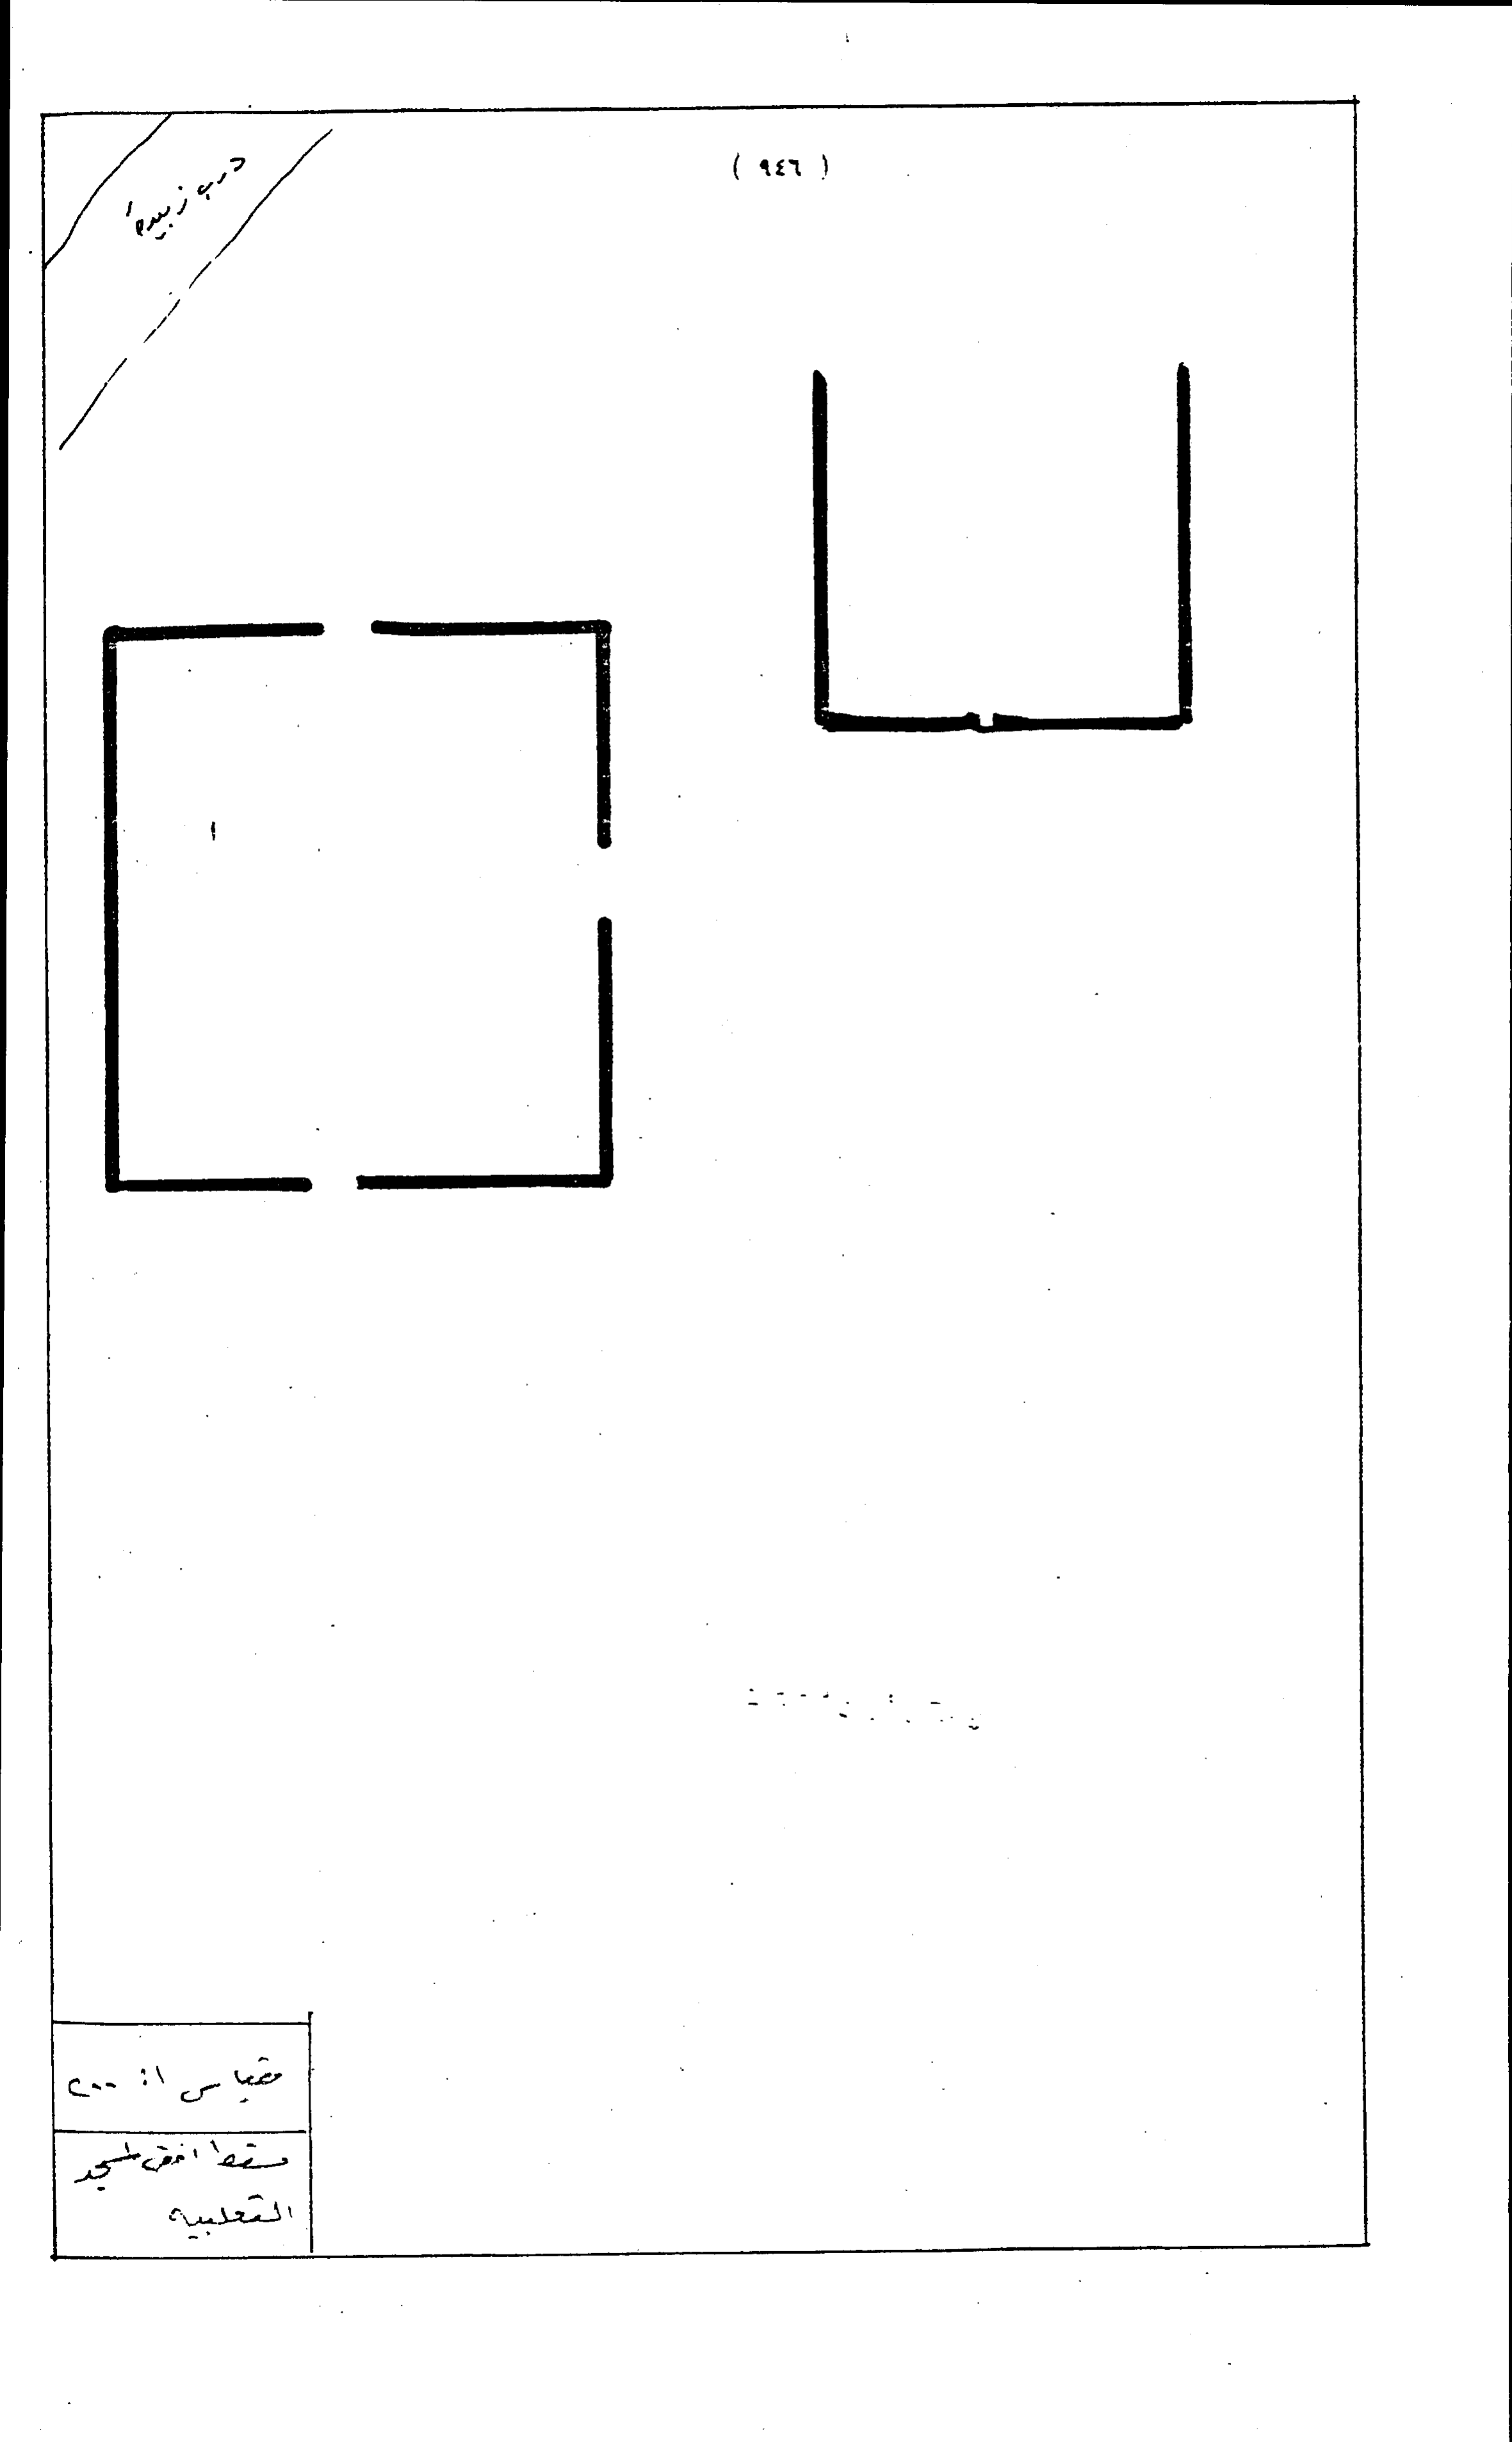 ( ٩٤٦ )
درب زبيدة
١
مقياس ١: ٢٠٠
مسقط افقى لمسجد
الثعلبيه